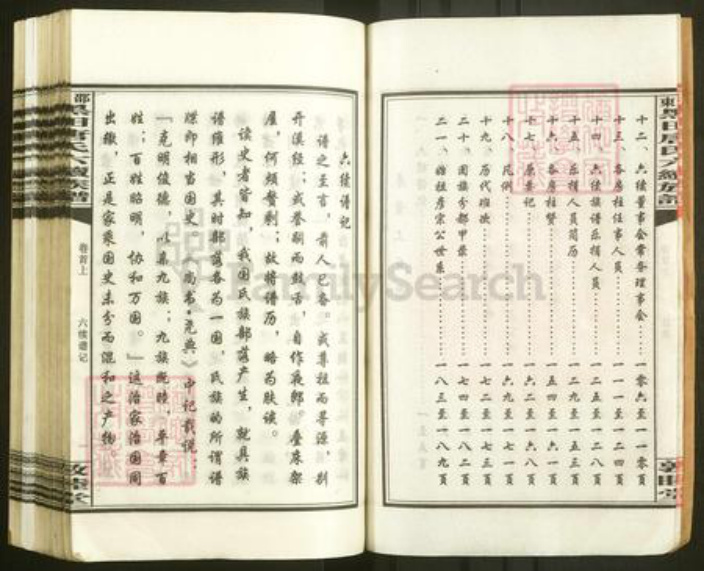 十二、六续董事会常务理事会……一零六至一一零页
十三、各房柱任事人员……一一一至一二四页
十四、六续族谱乐捐人员……一二五至一二八页
十五、乐捐人员简历……一二九至一五三页
十六、各房柱赞……一五四至一六一页
十七、原筹记……一六二至一六八页
十八、凡例……一六九至一七一页
十九、历代班次……一七二至一七三页
二十、困族分都甲业……一七四至一八二页
二十一、始祖彦宗公世系……一八三至一八九页
六续谱记
谱之至言，前人已备。或尊祖而寻源，别
开溪经；或眷嗣而鼓舌，自作夜郎。叠床架
屋，何烦赘剩；故将谱历，略为肤谈。
读史者皆知，我国民族部落产生，就具族
谱雏形，其时部落各为一国，民族的所谓谱
牒即相当国史。《尚书·尧典》中记载说：
“克明俊德，以亲九族；九族既睦，平章百
姓；百姓昭明，协和万国。”这治家治国同
出辙，正是家乘国史未分而混和之产物。
卷首上
六续谱记
敦睦堂
FamilySearch